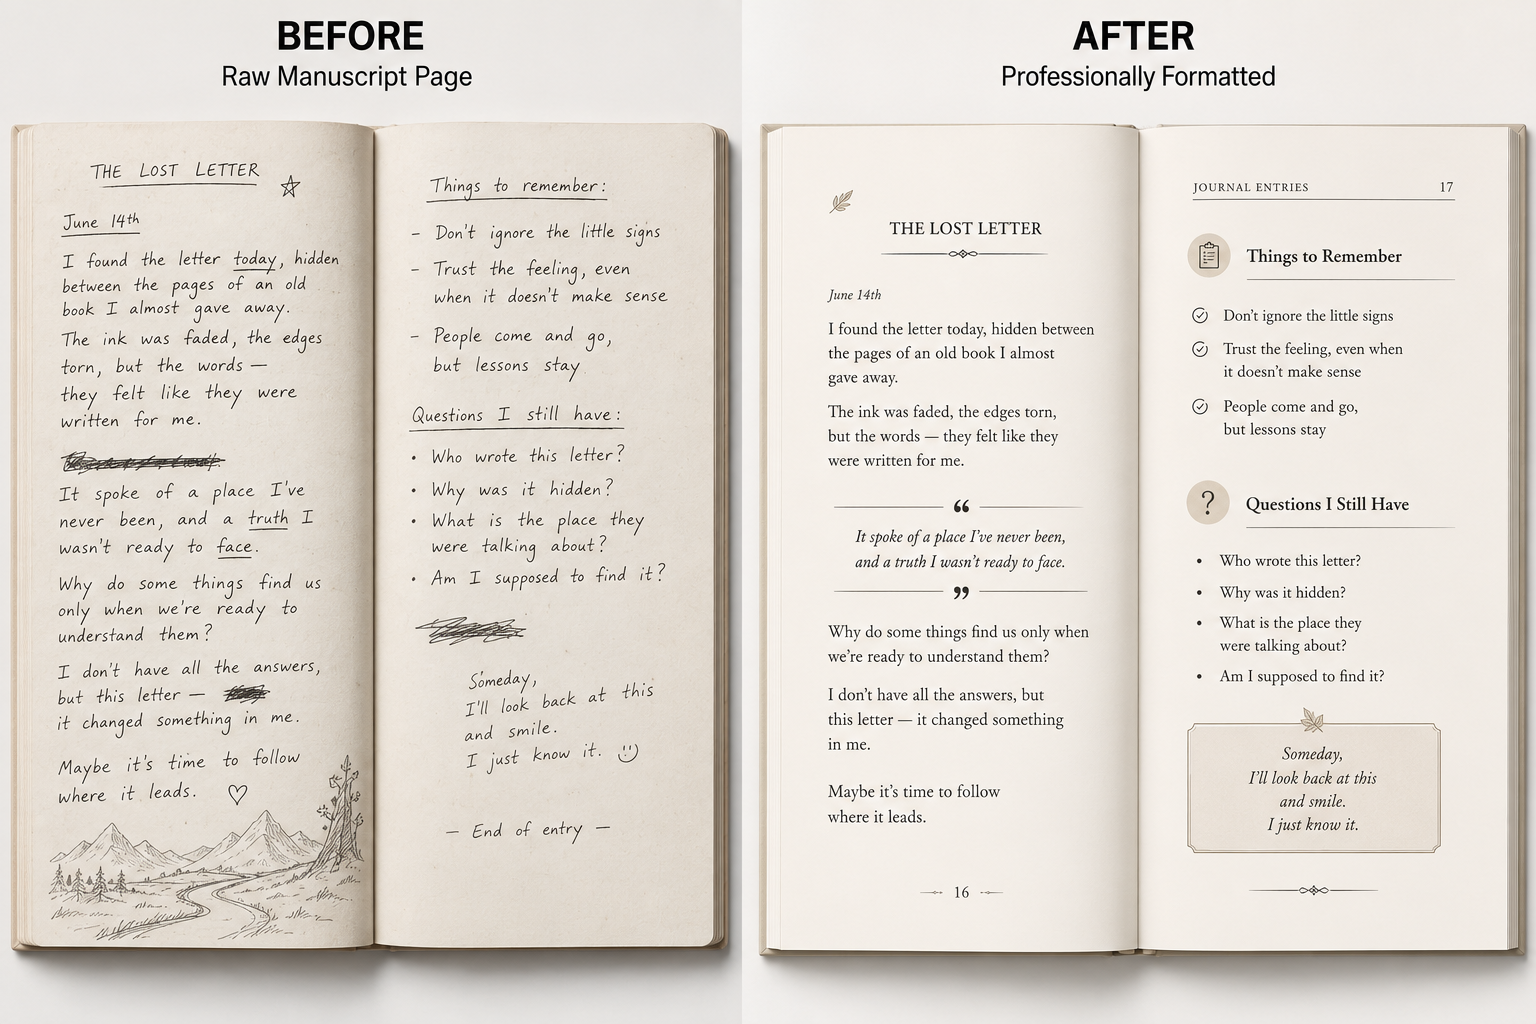 BEFORE
Raw Manuscript Page
THE LOST LETTER
June 14th
I found the letter today, hidden
between the pages of an old
book I almost gave away.
The ink was faded, the edges
torn, but the words —
they felt like they were
written for me.
It spoke of a place I've
never been, and a truth I
wasn't ready to face.
Why do some things find us
only when we're ready to
understand them?
I don't have all the answers,
but this letter —
it changed something in me.
Maybe it's time to follow
where it leads.
Things to remember:
- Don't ignore the little signs
- Trust the feeling, even
when it doesn't make sense
- People come and go,
but lessons stay
Questions I still have:
• Who wrote this letter?
• Why was it hidden?
• What is the place they
were talking about?
• Am I supposed to find it?
Someday,
I'll look back at this
and smile.
I just know it.
— End of entry —
AFTER
Professionally Formatted
THE LOST LETTER
June 14th
I found the letter today, hidden between
the pages of an old book I almost
gave away.
The ink was faded, the edges torn,
but the words — they felt like they
were written for me.
“
It spoke of a place I’ve never been,
and a truth I wasn’t ready to face.
”
Why do some things find us only when
we’re ready to understand them?
I don’t have all the answers, but
this letter — it changed something
in me.
Maybe it’s time to follow
where it leads.
16
JOURNAL ENTRIES 17
Things to Remember
Don’t ignore the little signs
Trust the feeling, even when
it doesn’t make sense
People come and go,
but lessons stay
?
Questions I Still Have
• Who wrote this letter?
• Why was it hidden?
• What is the place they
were talking about?
• Am I supposed to find it?
Someday,
I’ll look back at this
and smile.
I just know it.